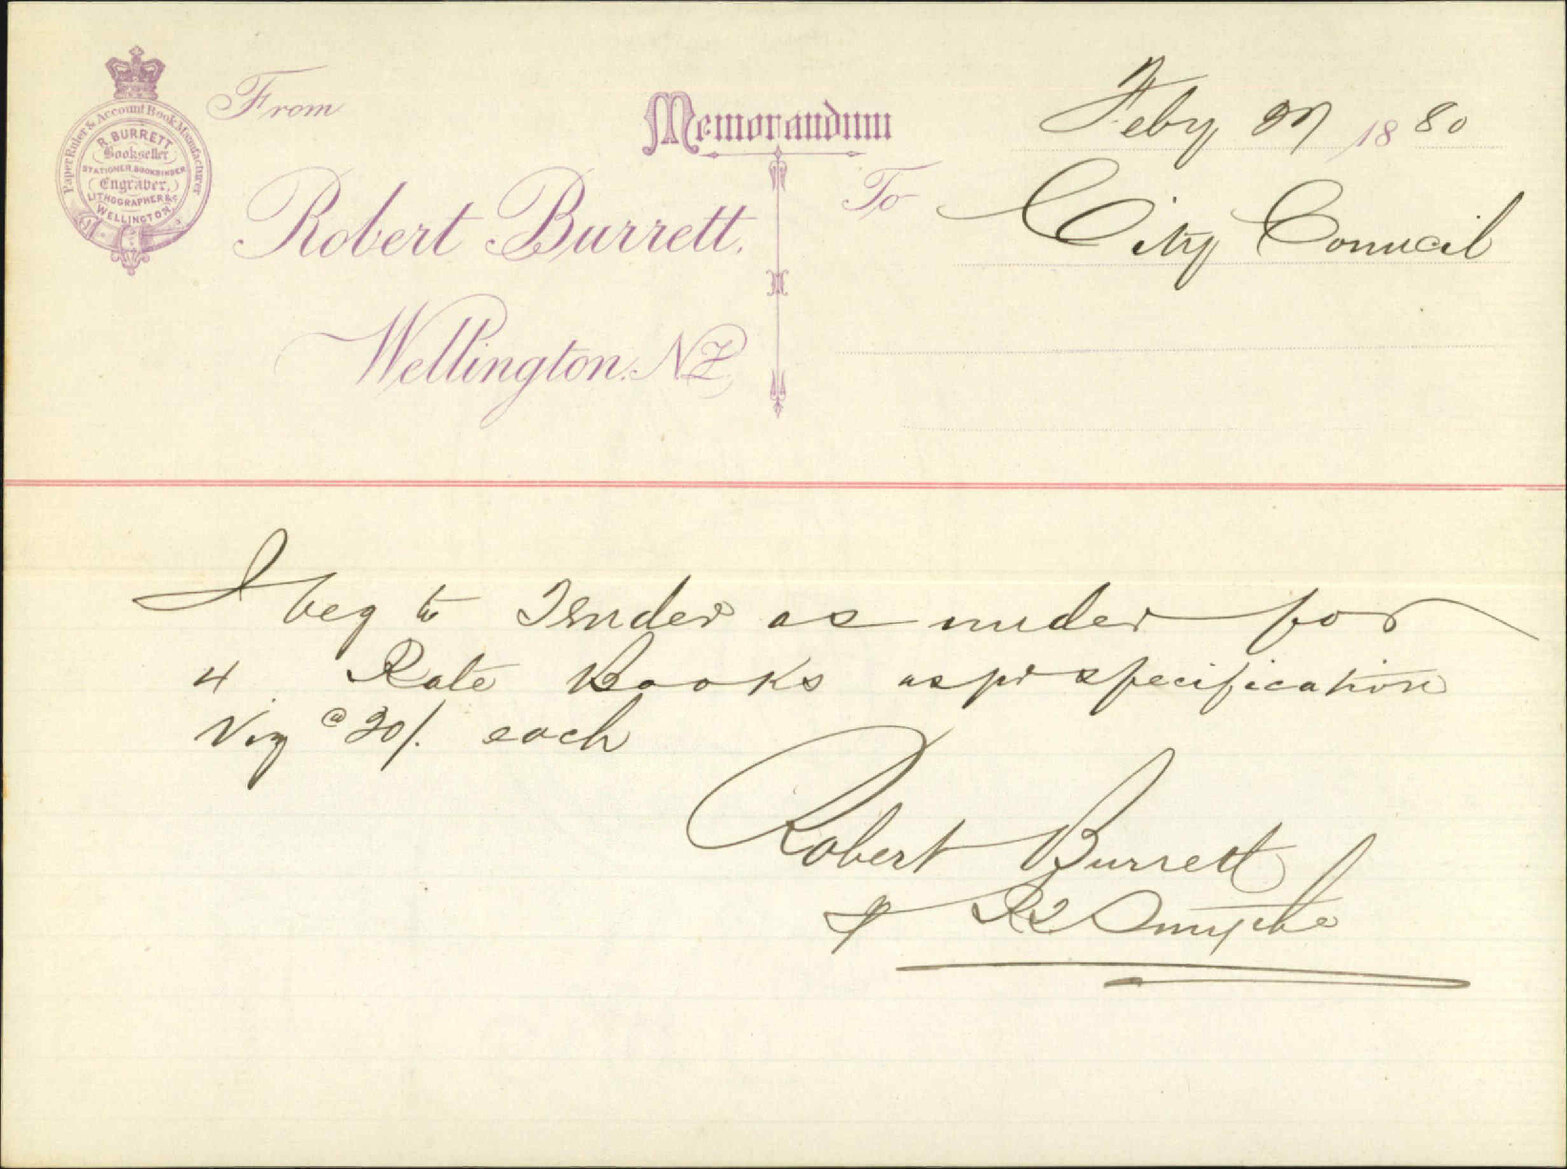 Paper Ruler & Account Book Manufacturer
R. BURRETT
Bookseller
STATIONER, BOOKBINDER
Engraver,
LITHOGRAPHER &c
WELLINGTON
From
Memorandum
Feby 27 1880
Robert Burrett,
To City Council
Wellington. NZ
I beg to Tender as under for
4 Rate Books as pr specification
Viz @ 30/. each
Robert Burrett
Smythe